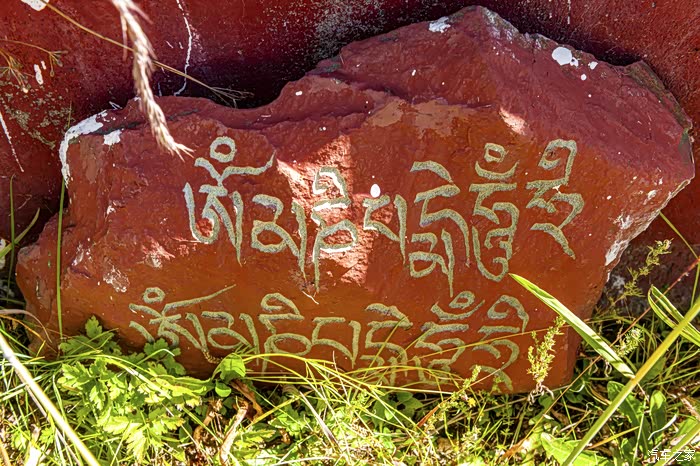 ༀ་མ་ཎི་པདྨེ་ཧཱུྃ་ཧྲཱིཿ
ༀ་མ་ཎི་པདྨེ་ཧཱུྃ་ཧྲཱིཿ
汽车之家